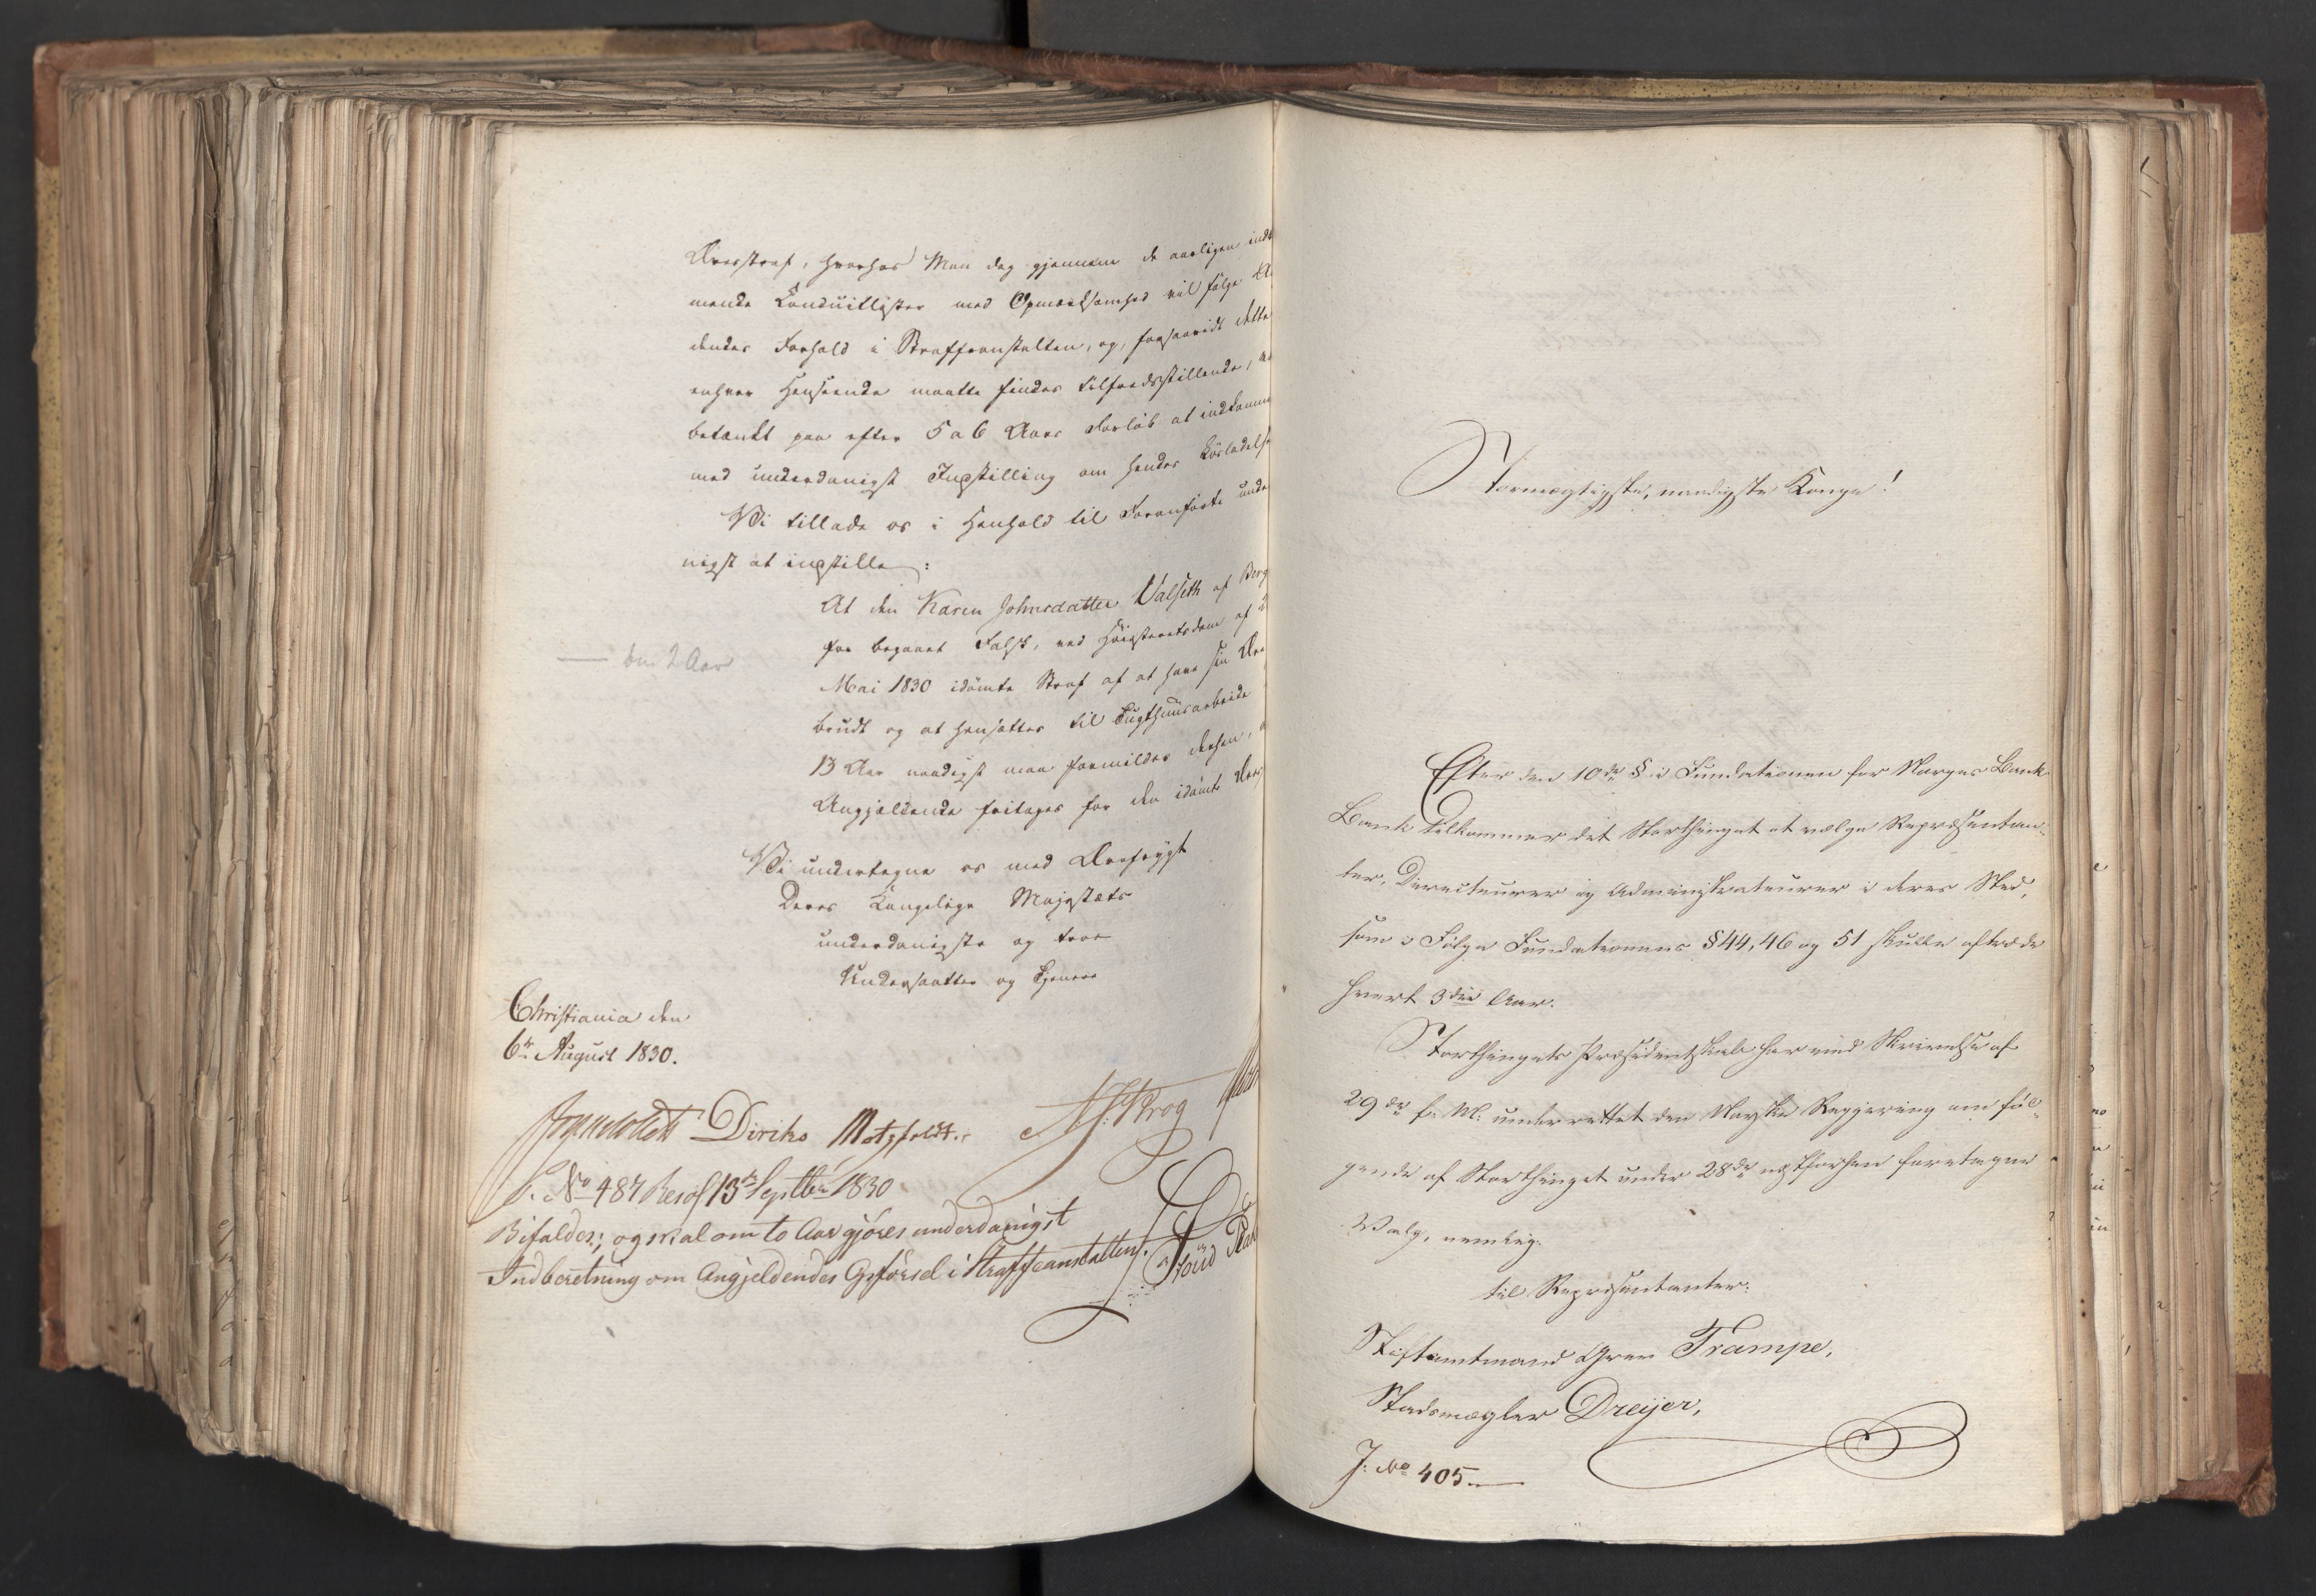 Æresstraf, hvorhos Man dog gjennem de aarligen ind
mende Conduitlister med Opmærksomhed vil følge A
dendes Forhold i Straffeanstalten, og, forsaavidt dette
enhver Henseende maatte findes tilfredsstillende,
betænkt paa efter 5 a 6 Aars Forløb at indkomme
med underdanigst Indstilling om hendes Løsladelse
Vi tillade os i Henhold til Foranførte unde
nigst at indstille:
At den Karen Johnsdatter Valseth af Berg
for begaaet Falsk, ved Høiesteretsdom af
— om 2 Aar
Mai 1830 idømte Straf af at have sin Ære
brudt og at hensættes til Tugthuusarbeide
13 Aar naadigst maa formildes derhen,
Angjældende fritages for den idømte Æres
Vi undertegne os med Ærefrygt
Deres Kongelige Majestæts
underdanigste og troe
Undersaatter og Tjenere
Christiania den
6te August 1830.
Diriks Motzfeldt. Krog
S. No 487 Resol. 13de Septbr 1830
Bifaldes; og skal om to Aar gjøres underdanigst
Indberetning om Angjeldendes Opførsel i Straffeanstalten.
Stormægtigste, naadigste Konge!
Efter den 10de § i Fundationen for Norges Bank
Bank tilkommer det Storthinget at vælge Repræsentan-
ter, Directeurer og Administrateurer i deres Sted,
som i Følge Fundationens § 44, 46 og 51 skulle aftræde
hvert 3die Aar.
Storthingets Præsidentskab har ved Skrivelse af
29de f: M: underrettet den Norske Regjering om føl-
gende af Storthinget under 28de næstforhen foretagne
Valg, nemlig:
til Repræsentanter:
Stiftamtmand Grev Trampe,
Stadsmægler Dreyer,
J: No 405.—